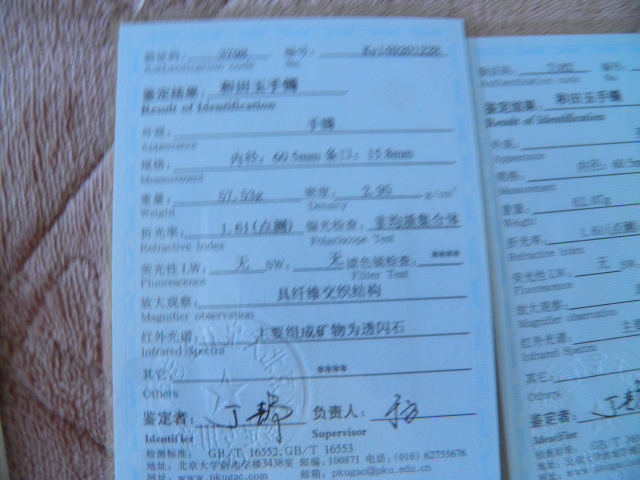 验证码: 3798 编号: Ky160201228
Authentication code No
鉴定结果: 和田玉手镯
Result of Identification
外观: 手镯
Appearance
规格: 内径: 60.5mm 条口: 15.8mm
Measurement
重量: 57.53g 密度: 2.95 g/cm³
Weight Density
折光率: 1.61(点测) 偏光检查: 非均质集合体
Refractive Index Polariscope Test
荧光性LW: 无 SW: 无 滤色镜检查: ****
Fluorescence Filter Test
放大观察: 具纤维交织结构
Magnifier observation
红外光谱: 主要组成矿物为透闪石
Infrared Spectra
其它: ****
Others
鉴定者: 负责人:
Identifier Supervisor
检测标准: GB/T 16552, GB/T 16553
地址: 北京大学新地学楼3438室 邮编: 100871 电话: (010) 62755676
网址: www.pkugac.com 邮箱: pkugac@pku.edu.cn
验证码: 编号:
Authentication code No
鉴定结果: 和田玉手镯
Result of Identification
外观:
Appearance
规格: 内径:
Measurement
重量:
Weight
折光率: 1.61(点测)
Refractive Index
荧光性LW: 无 SW:
Fluorescence
放大观察:
Magnifier observation
红外光谱: 主
Infrared Spectra
其它:
Others
鉴定者:
Identifier
检测标准: GB/T
地址: 北京大学
网址: www.pku